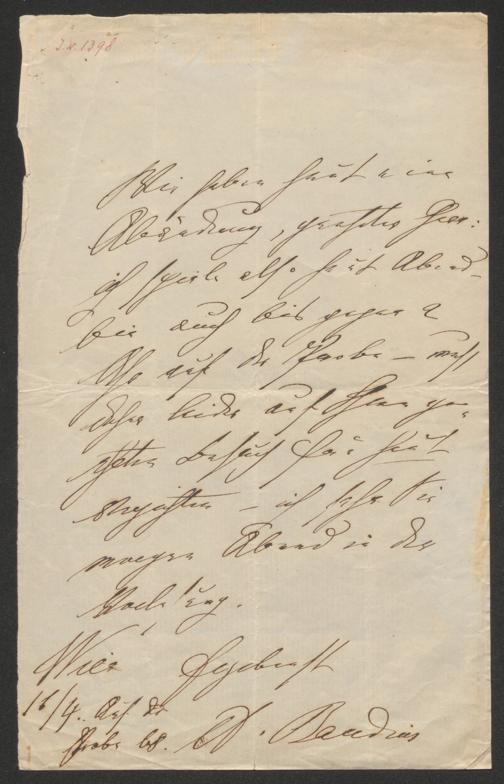 J.N. 1398
Wir haben heut eine
Abänderung, geehrter Herr:
ich spiele also heut Abend –
bin auch bis gegen 2
Uhr auf der Probe – muß
daher leider auf Ihren ge-
ehrten Besuch für heut
verzichten – ich sehe Sie
morgen Abend in der
Vorlesung.
Wien Ergebenst
16/4. Auf der
Probe bd. A. Baudius